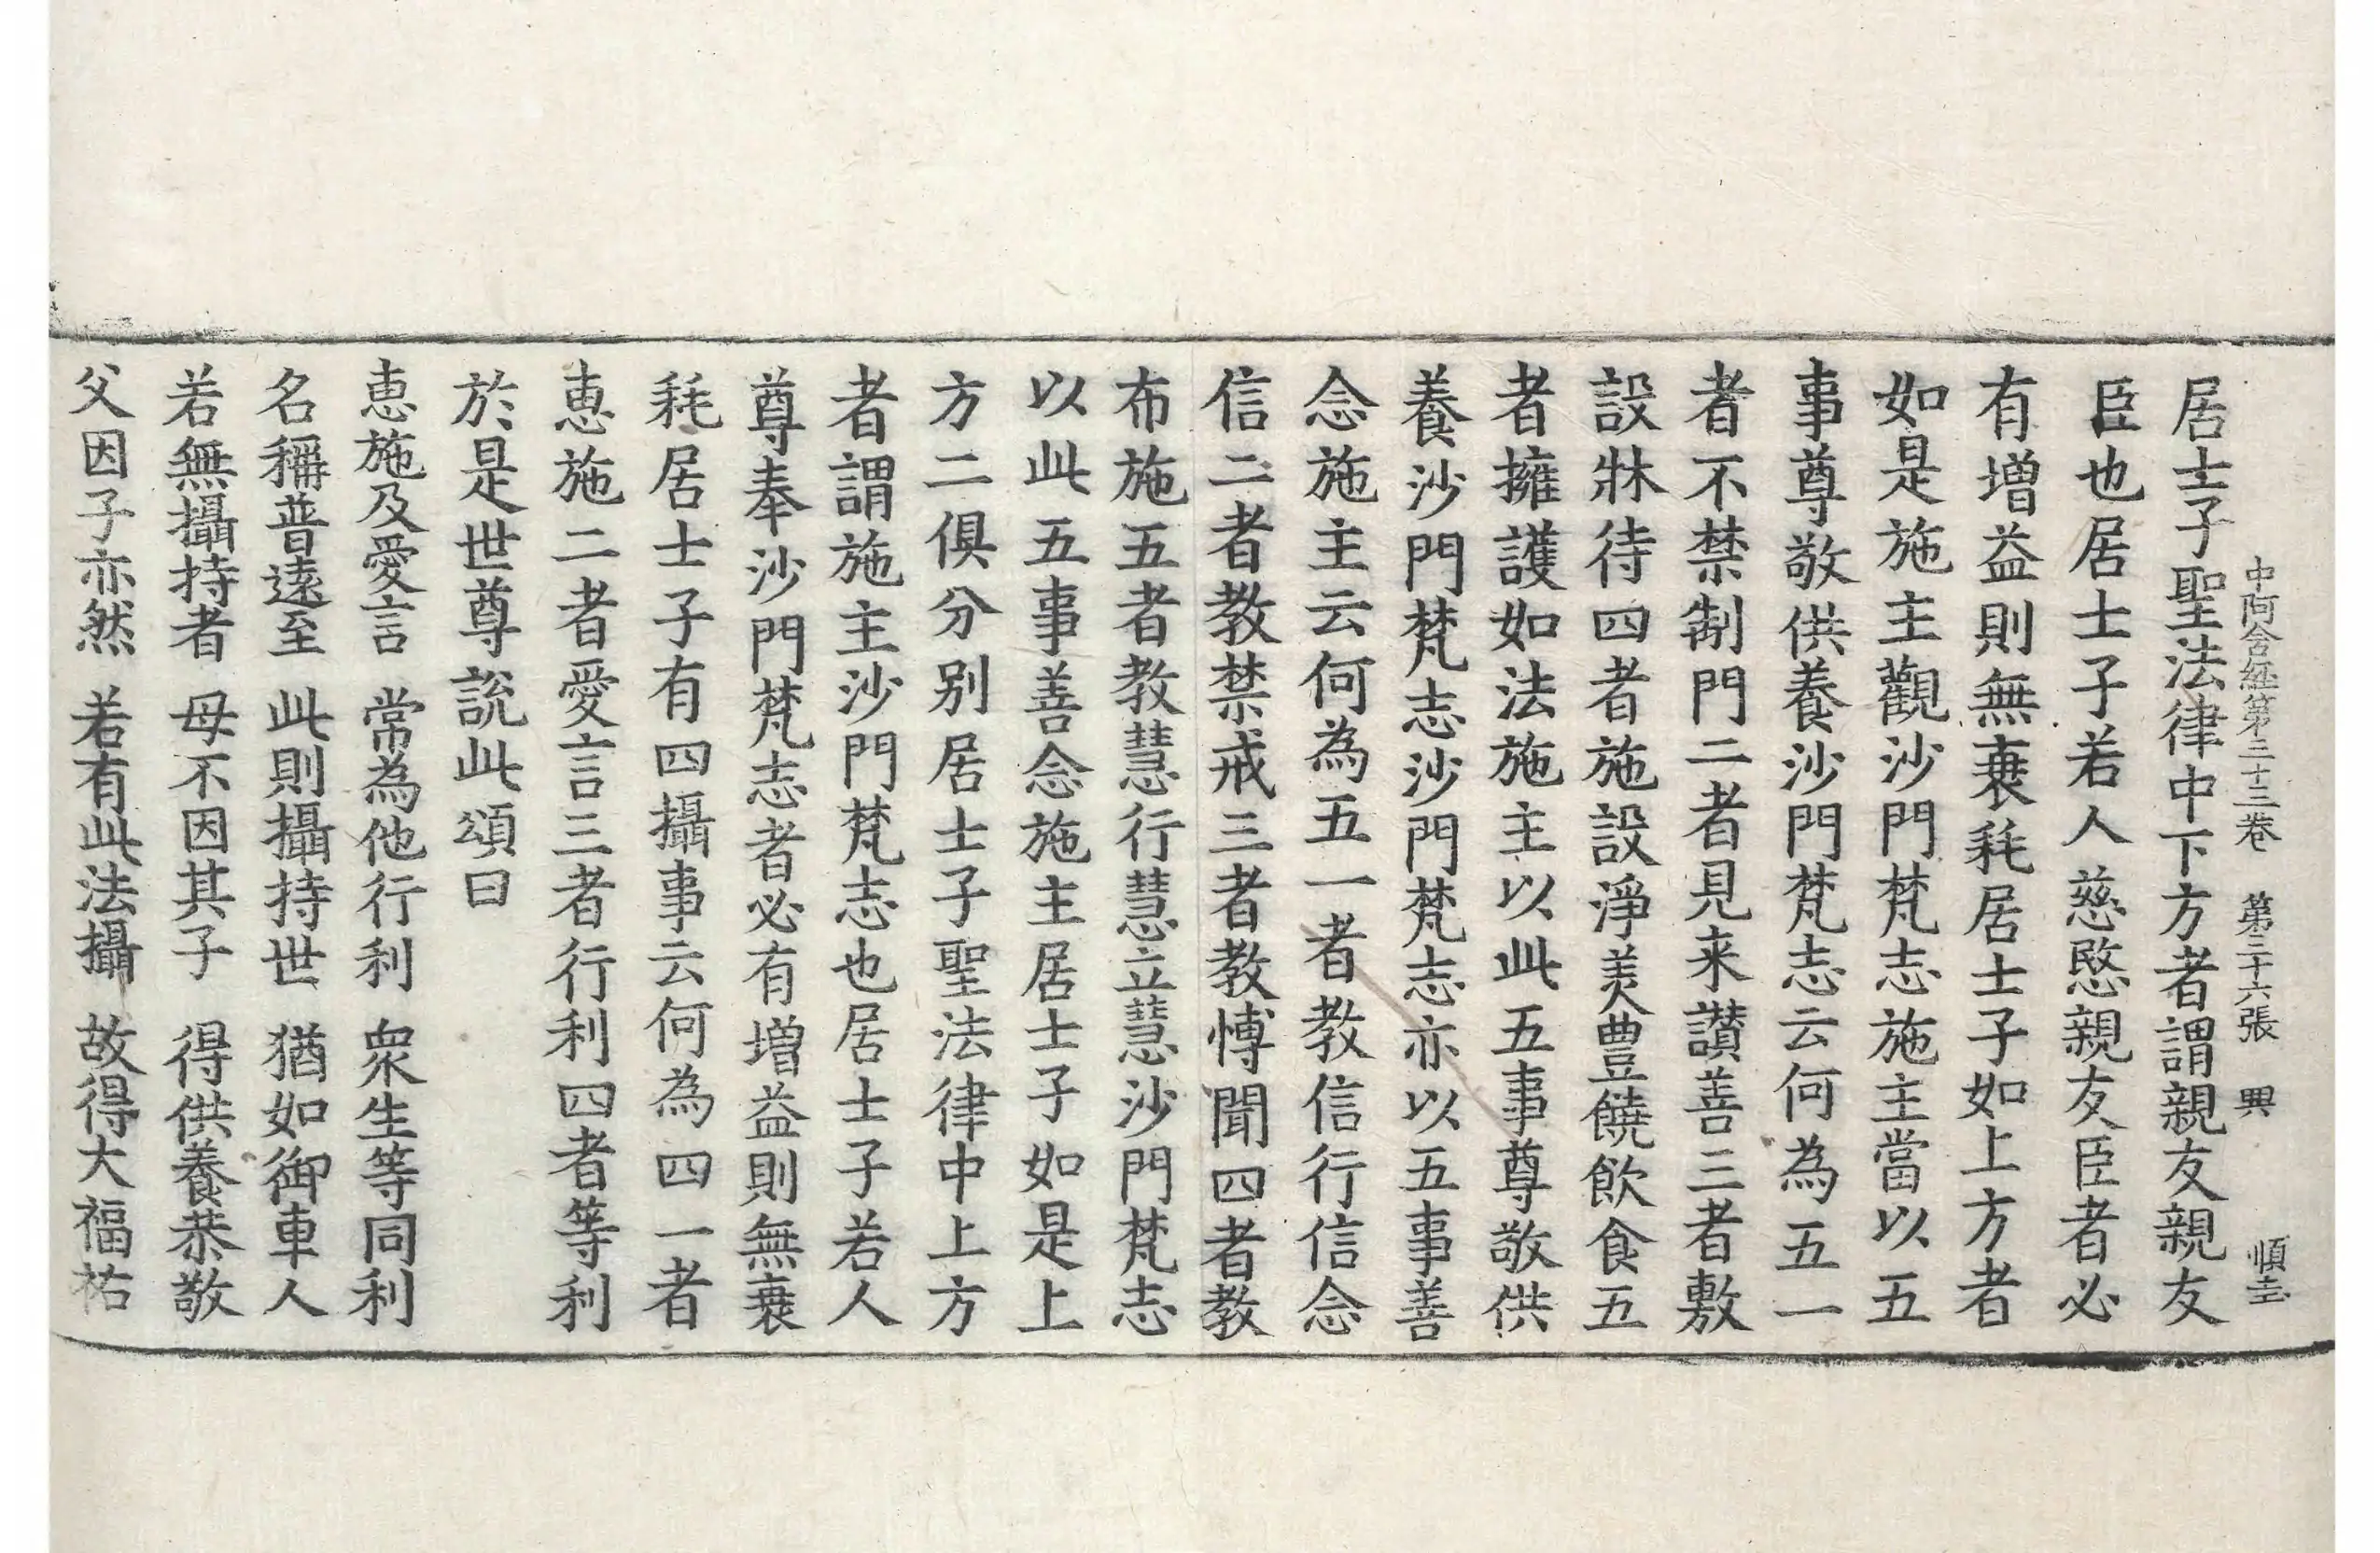 中阿含經第三十三卷 第三十六張 興 順圭
居士子聖法律中下方者謂親友親友
臣也居士子若人慈愍親友臣者必
有增益則無衰耗居士子如上方者
如是施主觀沙門梵志施主當以五
事尊敬供養沙門梵志云何為五一
者不禁制門二者見来讃善三者敷
設牀待四者施設淨美豊饒飲食五
者擁護如法施主以此五事尊敬供
養沙門梵志沙門梵志亦以五事善
念施主云何為五一者教信行信念
信二者教禁戒三者教愽聞四者教
布施五者教慧行慧立慧沙門梵志
以此五事善念施主居士子如是上
方二俱分別居士子聖法律中上方
者謂施主沙門梵志也居士子若人
尊奉沙門梵志者必有增益則無衰
耗居士子有四攝事云何為四一者
惠施二者愛言三者行利四者等利
於是世尊說此頌曰
惠施及愛言 常為他行利 眾生等同利
名稱普遠至 此則攝持世 猶如御車人
若無攝持者 母不因其子 得供養恭敬
父因子亦然 若有此法攝 故得大福祐